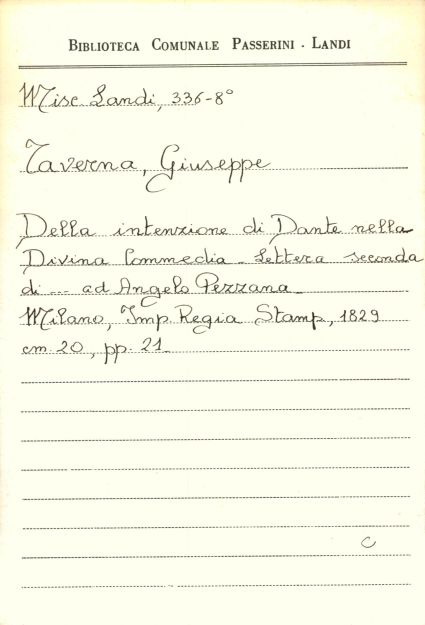 BIBLIOTECA COMUNALE PASSERINI - LANDI
Misc. Landi, 336-8°
Taverna, Giuseppe
Della intenzione di Dante nella
Divina Commedia - Lettera seconda
di --- ad Angelo Pezzana -
Milano, Imp. Regia Stamp, 1829
cm. 20, pp. 21 -
C